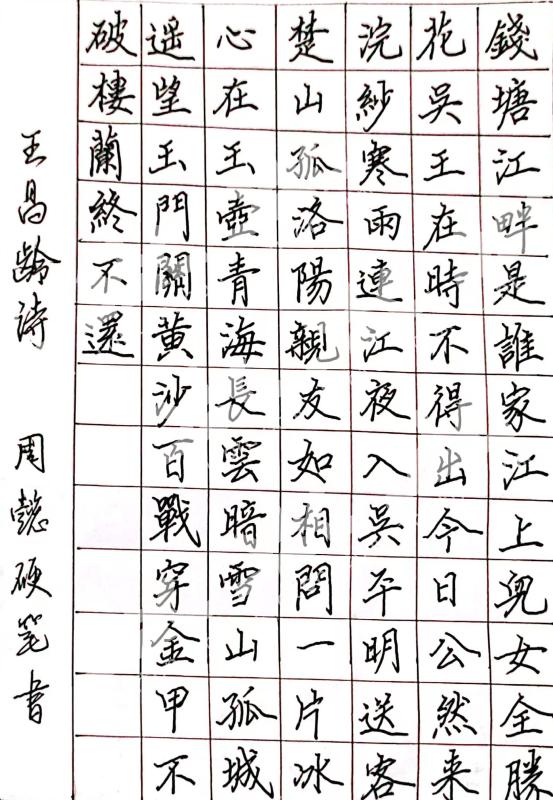 錢塘江畔是誰家江上兒女全勝
花吳王在時不得出今日公然來
浣紗寒雨連江夜入吳平明送客
楚山孤洛陽親友如相問一片冰
心在玉壺青海長雲暗雪山孤城
遥望玉門關黃沙百戰穿金甲不
破樓蘭終不還
王昌齡诗 周懿硬笔書